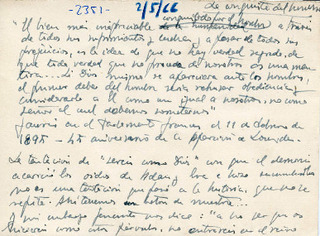 -2351-
2/5/66
de conquista del hombre
"El bien más inestimable conquistado por el hombre a través
de todos sus sufrimientos y luchas, y a pesar de todos sus
prejuicios, es la idea de que no hay verdad sagrada,
que toda verdad que no proceda del nosotros es una men-
tira... Si Dios mismo se apareciera ante los hombres,
el primer deber del hombre sería rehusar obediencia y
considerarlo a El como un igual a nosotros, no como
Señor al cual debamos someternos"
Jaurés en el Parlamento francés el 11 de febrero de
1895 - 45 aniversario de la Aparición de Lourdes.
La tentación de "seréis como Dios" con que el demonio
acarició los oídos de Adán y Eva e hizo sucumbirlos
no es una tentación que pasó a la historia, que no se
repita. Ahí tenemos un botón de muestra...
Y sin embargo nos dice: "a no ser que os
hiciereis como párvulos, no entraréis en el reino